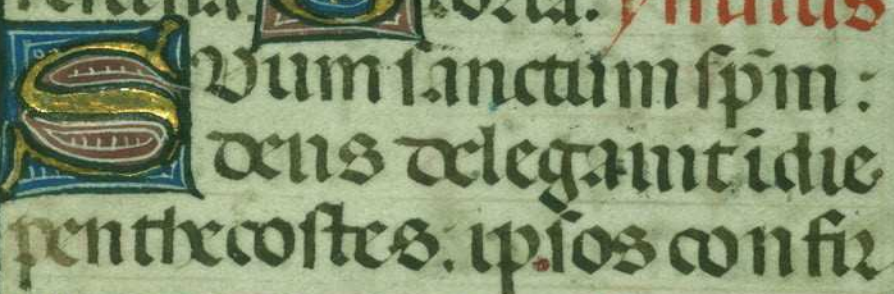 gloria. ymnus
SUum sanctum sp̄m :
deus delegauit ī die
penthecostes: ipsos confir